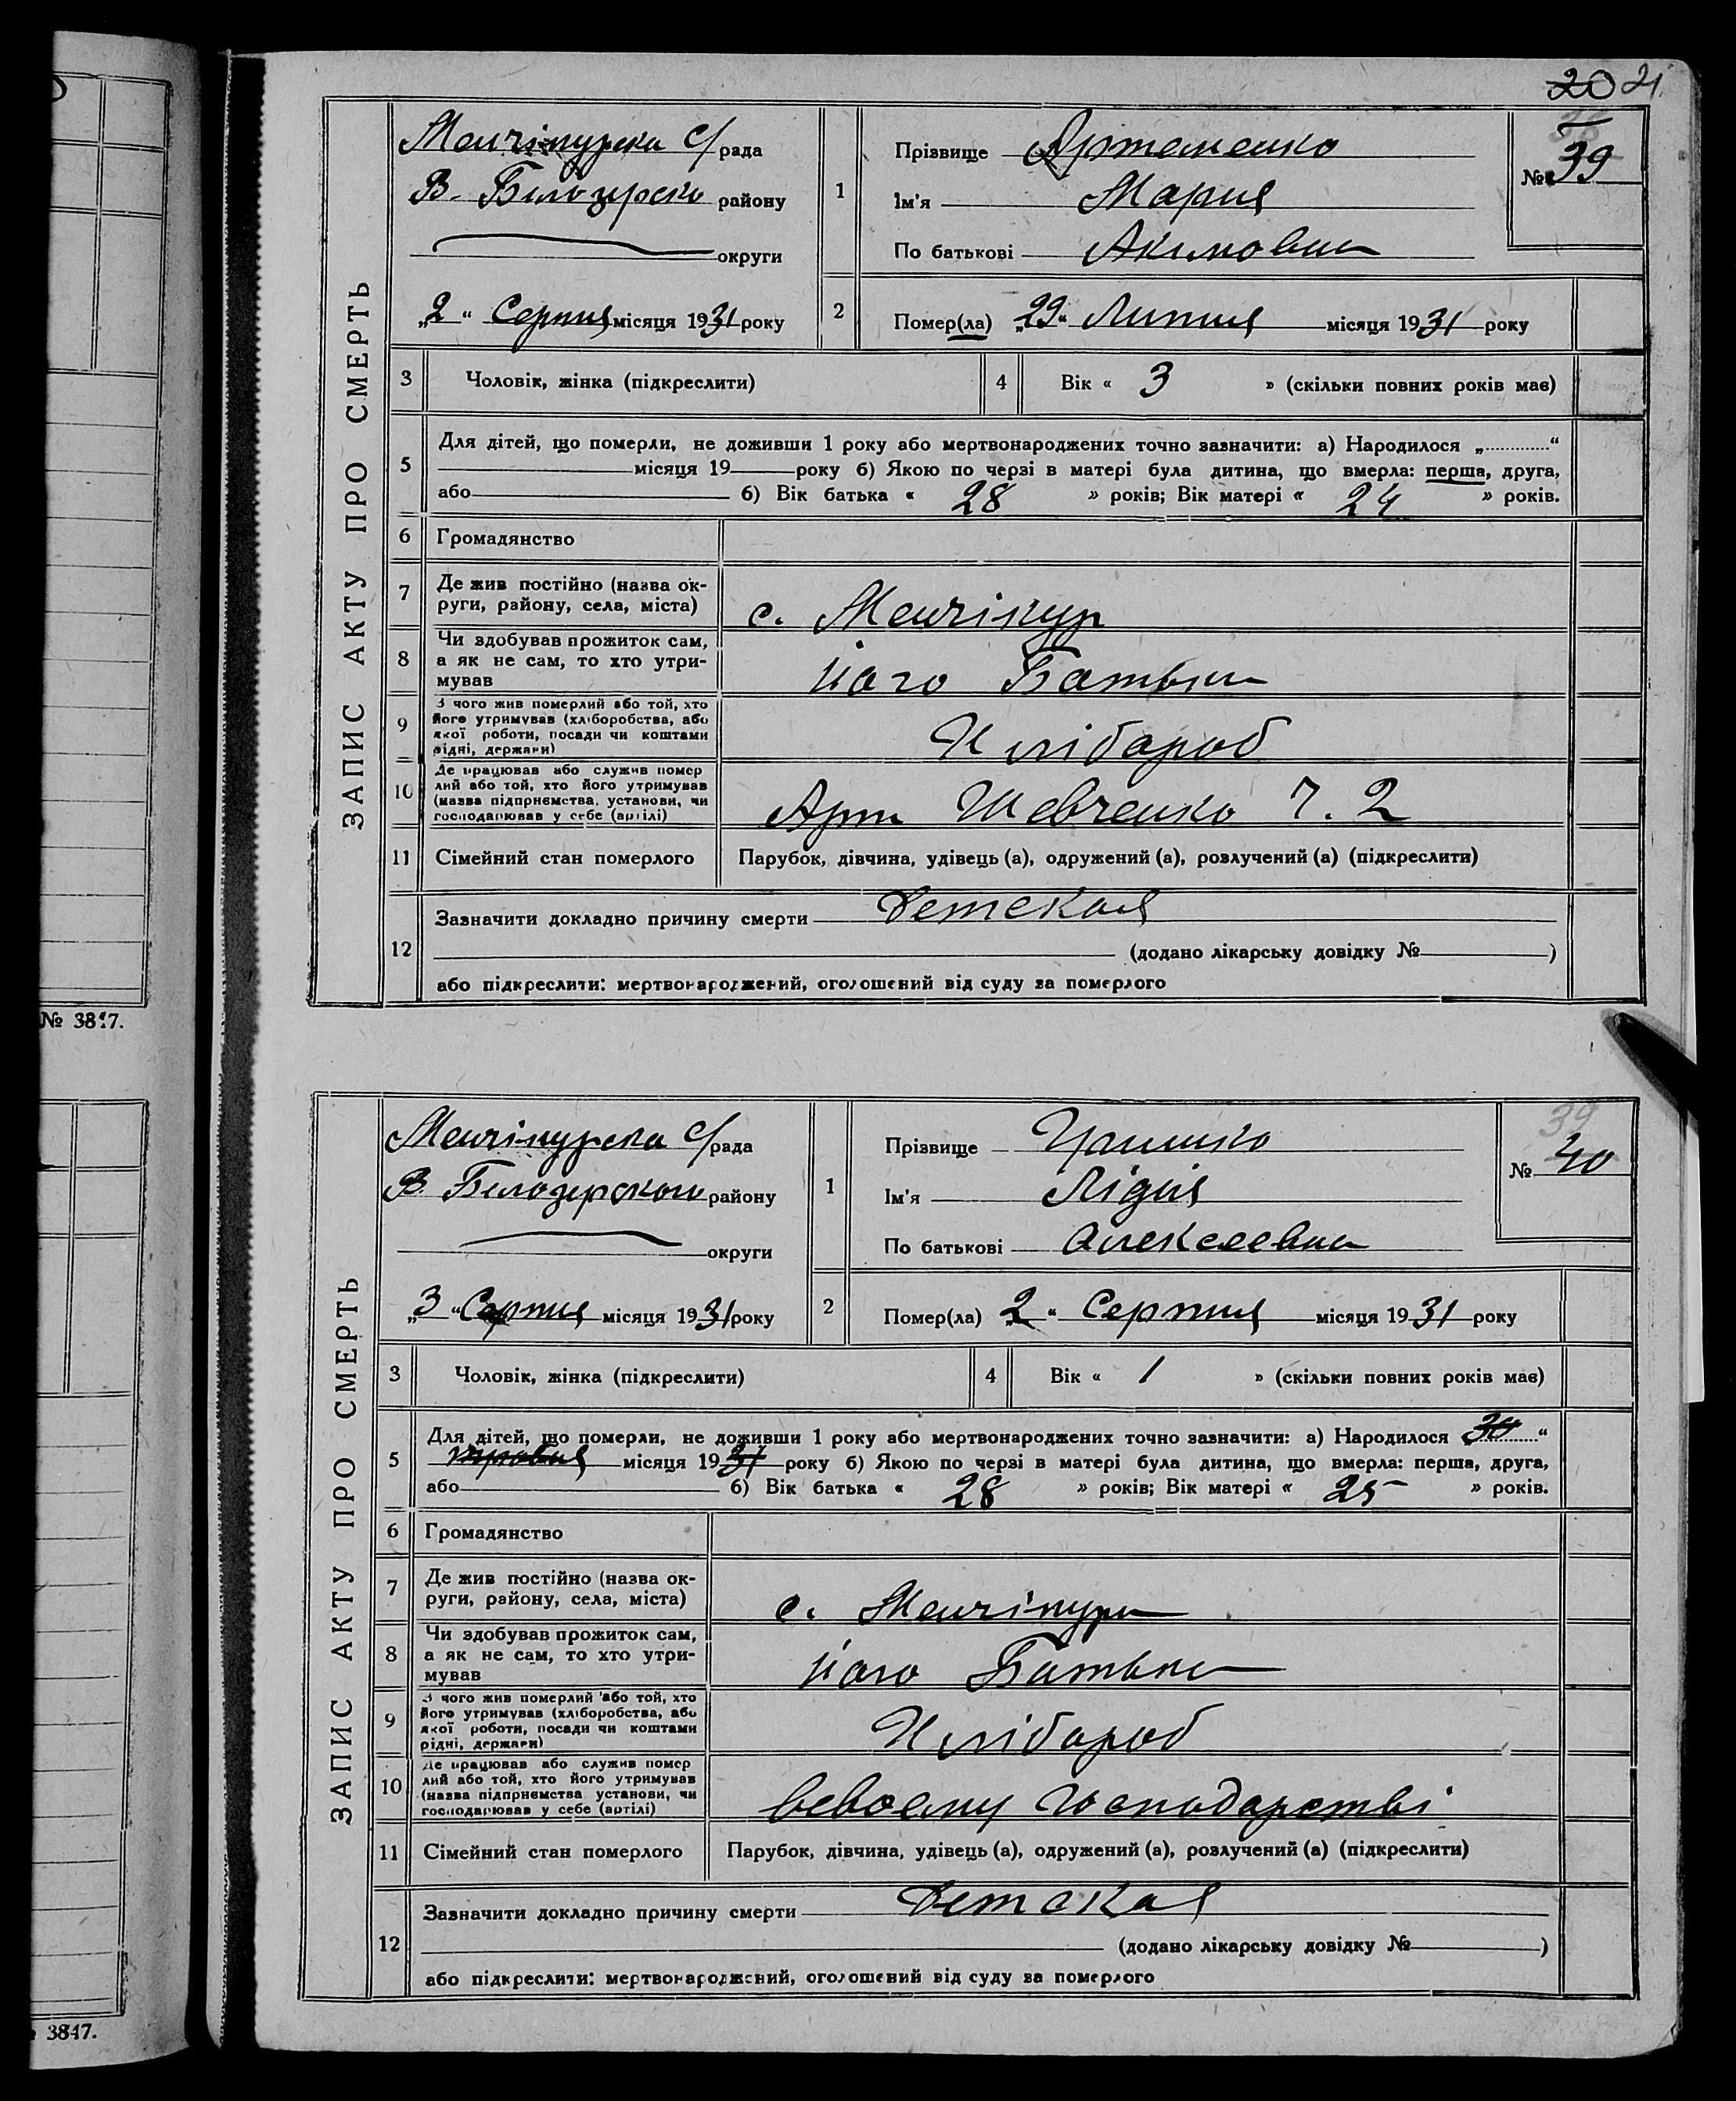 20 21
ЗАПИС АКТУ ПРО СМЕРТЬ
Менчікурска С/рада
В. Білозерско району
округи
„2“ Серпня місяця 1931 року
1
Прізвище Артеменко
Ім'я Мария
По батькові Акимовна
38
№ 39
2
Помер(ла) „29“ Липня місяця 1931 року
3 Чоловік, жінка (підкреслити)
4 Вік « 3 » (скільки повних років має)
5 Для дітей, що померли, не доживши 1 року або мертвонароджених точно зазначити: а) Народилося „............“
місяця 19 року б) Якою по черзі в матері була дитина, що вмерла: перша, друга,
або б) Вік батька « 28 » років; Вік матері « 24 » років.
6 Громадянство
7 Де жив постійно (назва ок-
руги, району, села, міста) с. Менчікур
8 Чи здобував прожиток сам,
а як не сам, то хто утри-
мував його Батьки
9 З чого жив померлий або той, хто
його утримував (хліборобства, або
якої роботи, посади чи коштами
рідні, держави) Хлібороб
10 Де працював або служив помер
лий або той, хто його утримував
(назва підприємства, установи, чи
господарював у себе (артілі) Арт Шевченко Ч. 2
11 Сімейний стан померлого Парубок, дівчина, удівець (а), одружений (а), розлучений (а) (підкреслити)
12 Зазначити докладно причину смерти Детская
(додано лікарську довідку № )
або підкреслити: мертвонароджений, оголошений від суду за померлого
№ 3817.
ЗАПИС АКТУ ПРО СМЕРТЬ
Менчікурска С/рада
В. Білозерского району
округи
„3“ Серпня місяця 1931 року
1
Прізвище
Ім'я Лідия
По батькові Олексеевна
39
№ 40
2
Помер(ла) „2“ Серпня місяця 1931 року
3 Чоловік, жінка (підкреслити)
4 Вік « 1 » (скільки повних років має)
5 Для дітей, що померли, не доживши 1 року або мертвонароджених точно зазначити: а) Народилося „30“
місяця 1931 року б) Якою по черзі в матері була дитина, що вмерла: перша, друга,
або б) Вік батька « 28 » років; Вік матері « 25 » років.
6 Громадянство
7 Де жив постійно (назва ок-
руги, району, села, міста) с. Менчікури
8 Чи здобував прожиток сам,
а як не сам, то хто утри-
мував його Батьки
9 З чого жив померлий або той, хто
його утримував (хліборобства, або
якої роботи, посади чи коштами
рідні, держави) Хлібороб
10 Де працював або служив помер
лий або той, хто його утримував
(назва підприємства установи, чи
господарював у себе (артілі) всвоему господарстві
11 Сімейний стан померлого Парубок, дівчина, удівець (а), одружений (а), розлучений (а) (підкреслити)
12 Зазначити докладно причину смерти Детская
(додано лікарську довідку № )
або підкреслити: мертвонароджений, оголошений від суду за померлого
3817.